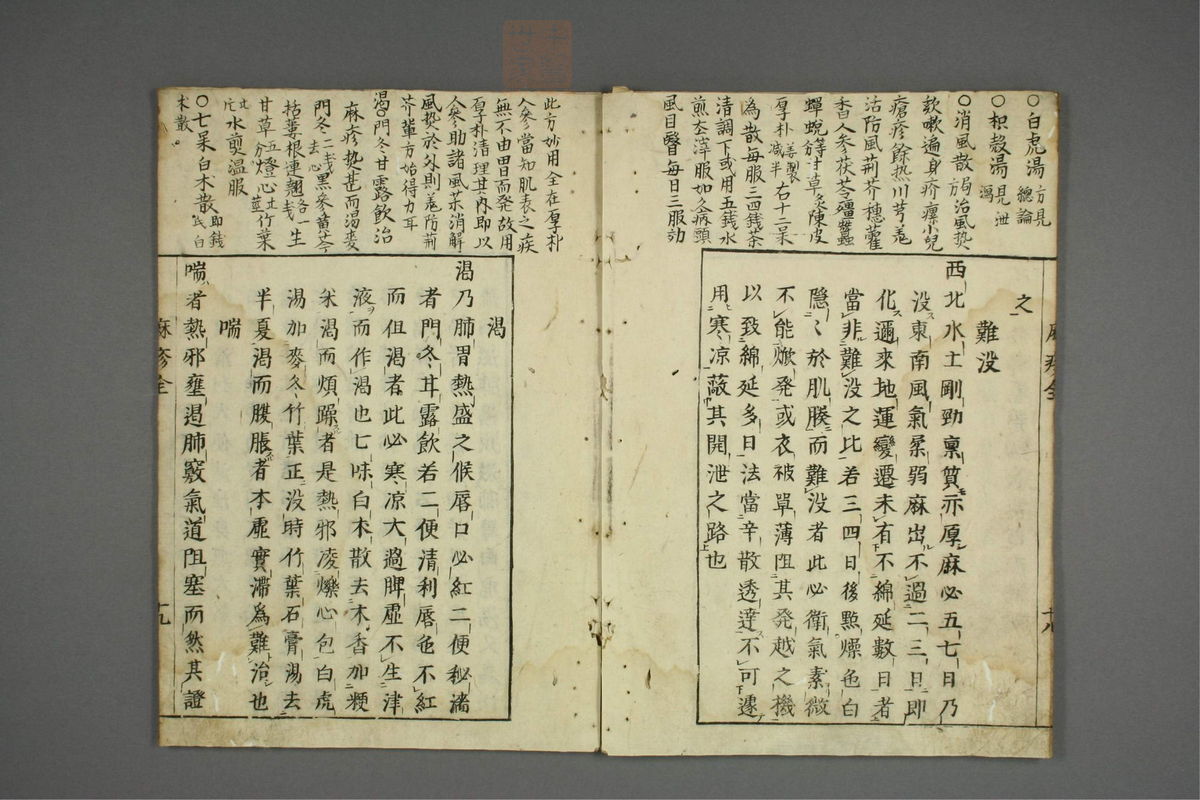 ○白虎湯方見總論
○枳殼湯見泄瀉
○消風散局治風熱
欬嗽遍身疥癩小兒
瘡疹餘熱川芎羌
活防風荆芥穗藿
香人參茯苓殭蠶
蟬蛻等甘草炙陳皮
厚朴薑製減半右十二味
為散每服三四錢茶
清調下或用五錢水
煎滓服如久病頭
風目瞖每日三服効
之
難没
西北水土剛勁稟質亦厚麻必五七日乃
没東南風氣柔弱麻出不過二三日即
化邇來地運變遷未有不綿延數日者
當非難没之比若三四日後點燥色白
隱〻於肌膜而難没者此必衛氣素微
不能焮發或衣被單薄阻其發越之機
以致綿延多日法當辛散透達不可遽
用寒凉蔽其開泄之路也
此方妙用全在厚朴
人參當知肌表之疾
無不由胃而発故用
厚朴清理其内即以
人參助諸風藥消解
風勢於外則羌防荆
芥輩方始得力耳
渇○門冬甘露飲治
麻疹熱甚而渇麥
門冬去心二戔黒參黄芩
栝蔞根連翹各一戔生
甘草五分燈心竹葉
水煎温服
○七味白术散即錢氏白
术散
渇
渇乃肺胃熱盛之候唇口必紅二便秘濇
者門冬甘露飲若二便清利唇色不紅
而但渇者此必寒凉大過脾虛不生津
液而作渇也七味白术散去木香加粳
米渇而煩躁者是熱邪凌爍心包白虎
湯加麥冬竹葉正没時竹葉石膏湯去
半夏渇而腹脹者本虛實滯爲難治也
喘
喘者熱邪壅遏肺竅氣道阻塞而然其證
麻疹全
十九